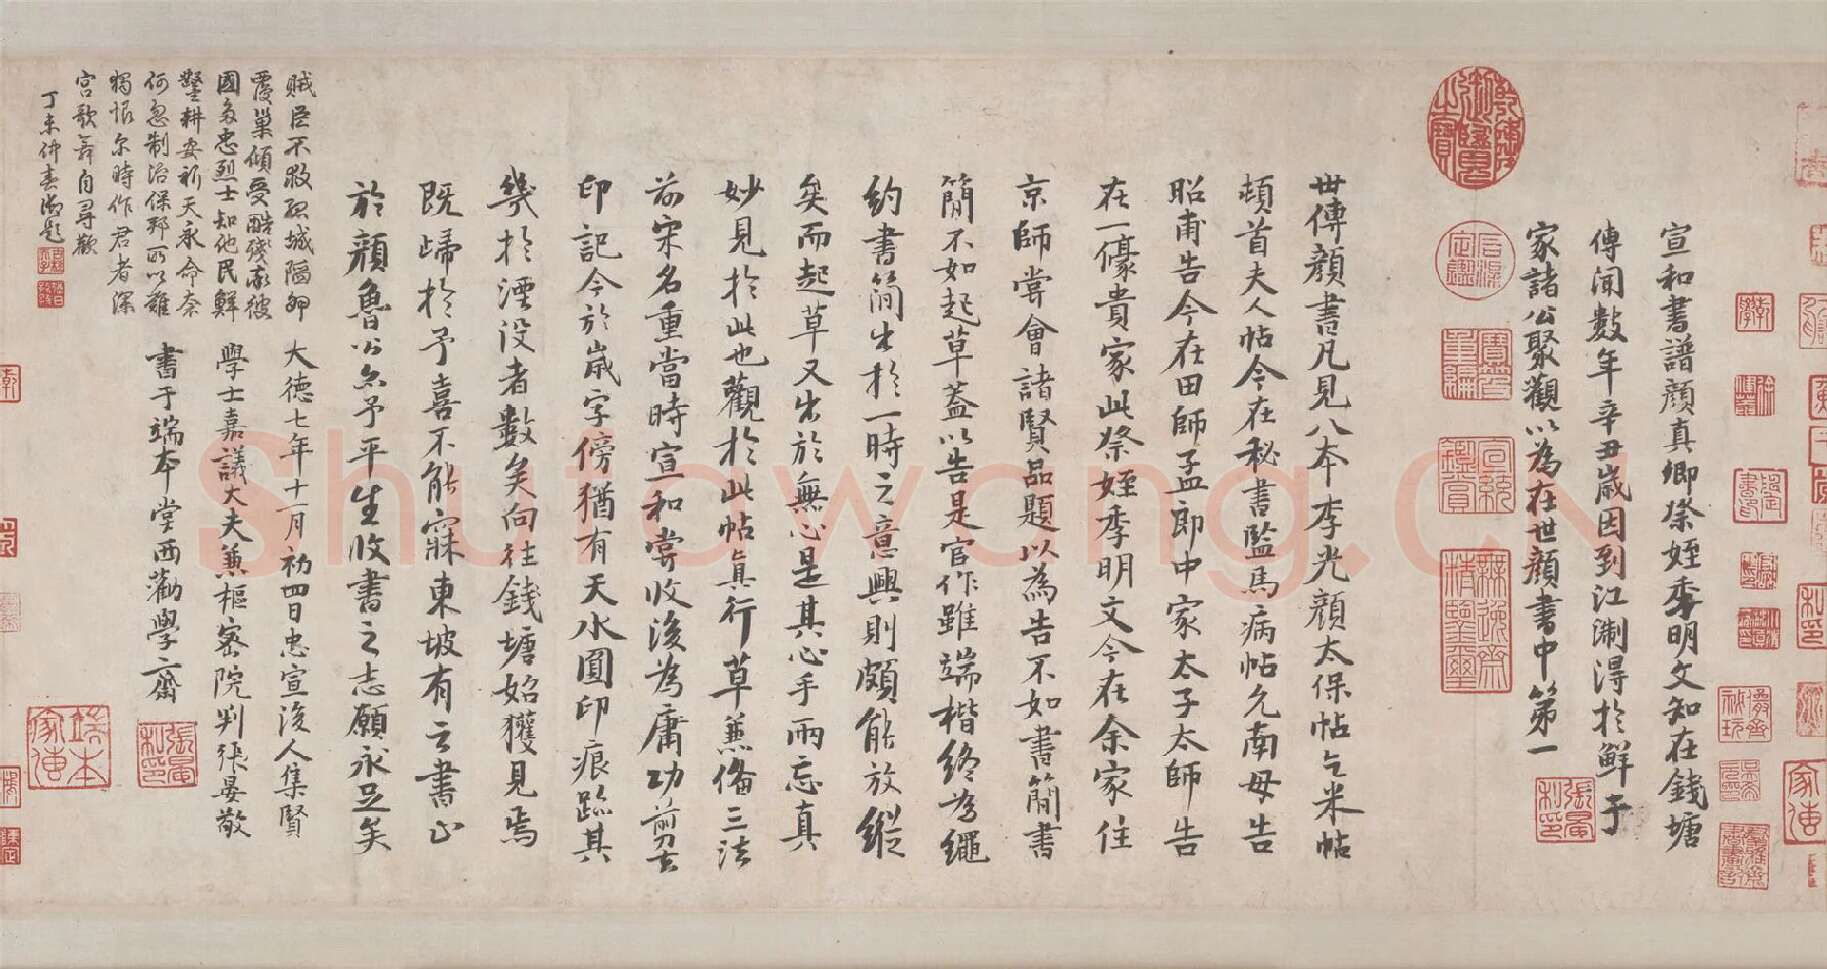 宣和書譜顔真卿祭姪季明文知在錢塘
傳聞數年辛丑歲因到江淛得於鮮于
家諸公聚觀以為在世顔書中第一
世傳顔書凡見八本李光顔太保帖乞米帖
頓首夫人帖今在秘書監馬病帖允南母告
昭甫告今在田師孟郎中家太子太師告
在一豪貴家此祭姪季明文今在余家住
京師嘗會諸賢品題以為告不如書簡書
簡不如起草蓋以告是官作雖端楷終為繩
約書簡出於一時之意興則頗能放縱
矣而起草又出於無心是其心手兩忘真
妙見於此也觀於此帖真行草兼備三法
前宋名重當時宣和嘗收後為庸功剪去
印記今於歲字傍猶有天水圓印痕跡其
幾於湮沒者數矣向往錢塘始獲見焉
既歸於予喜不能寐東坡有云書止
於顔魯公亦予平生收書之志願永足矣
大德七年十一月初四日忠宣後人集賢
學士嘉議大夫兼樞密院判張晏敬
書于端本堂西勸學齋
賊臣不救孤城隔卵
覆巢傾受酷殘承彼
國多忠烈士知他民鮮
鑿耕安祈天永命奈
何忽制治保邦所以難
獨恨尔時作君者深
宮歌舞自尋歡
丁未仲春御題
張晏私印
端本家傳
張晏私印
Shufawang.CN